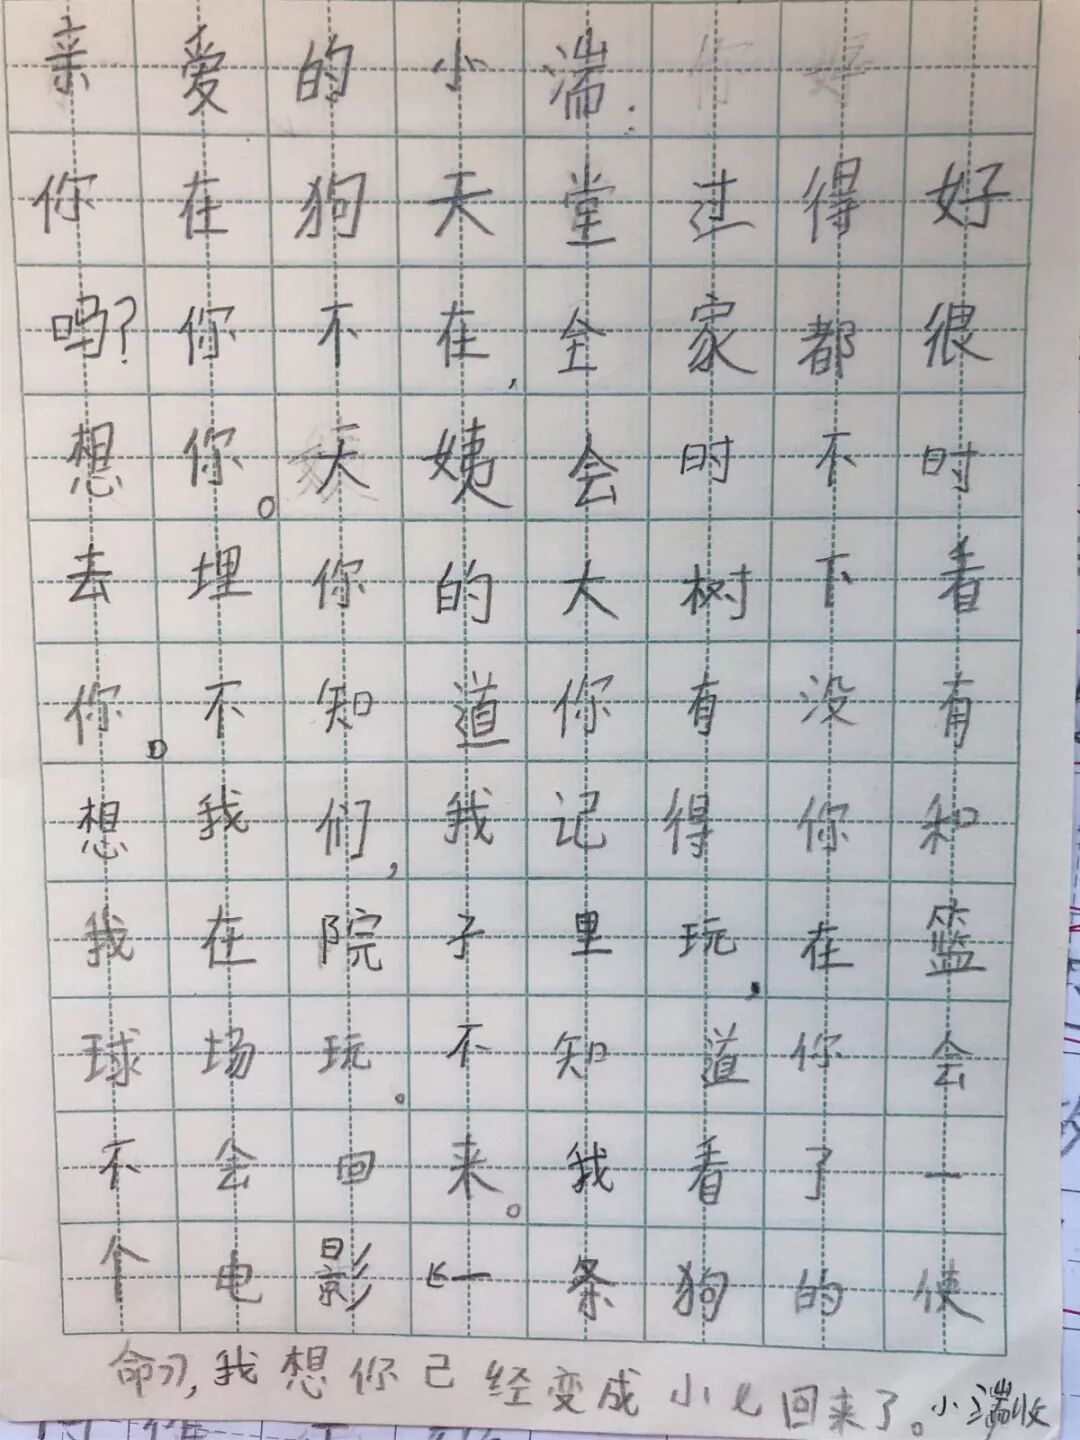 亲爱的小湍:
你在狗天堂过得好
吗?你不在,全家都很
想你。大姨会时不时
去埋你的大树下看
你。不知道你有没有
想我们,我记得你和
我在院子里玩,在篮
球场玩。不知道你会
不会回来。我看了一
个电影《一条狗的使
命》,我想你己经变成小七回来了。小湍收